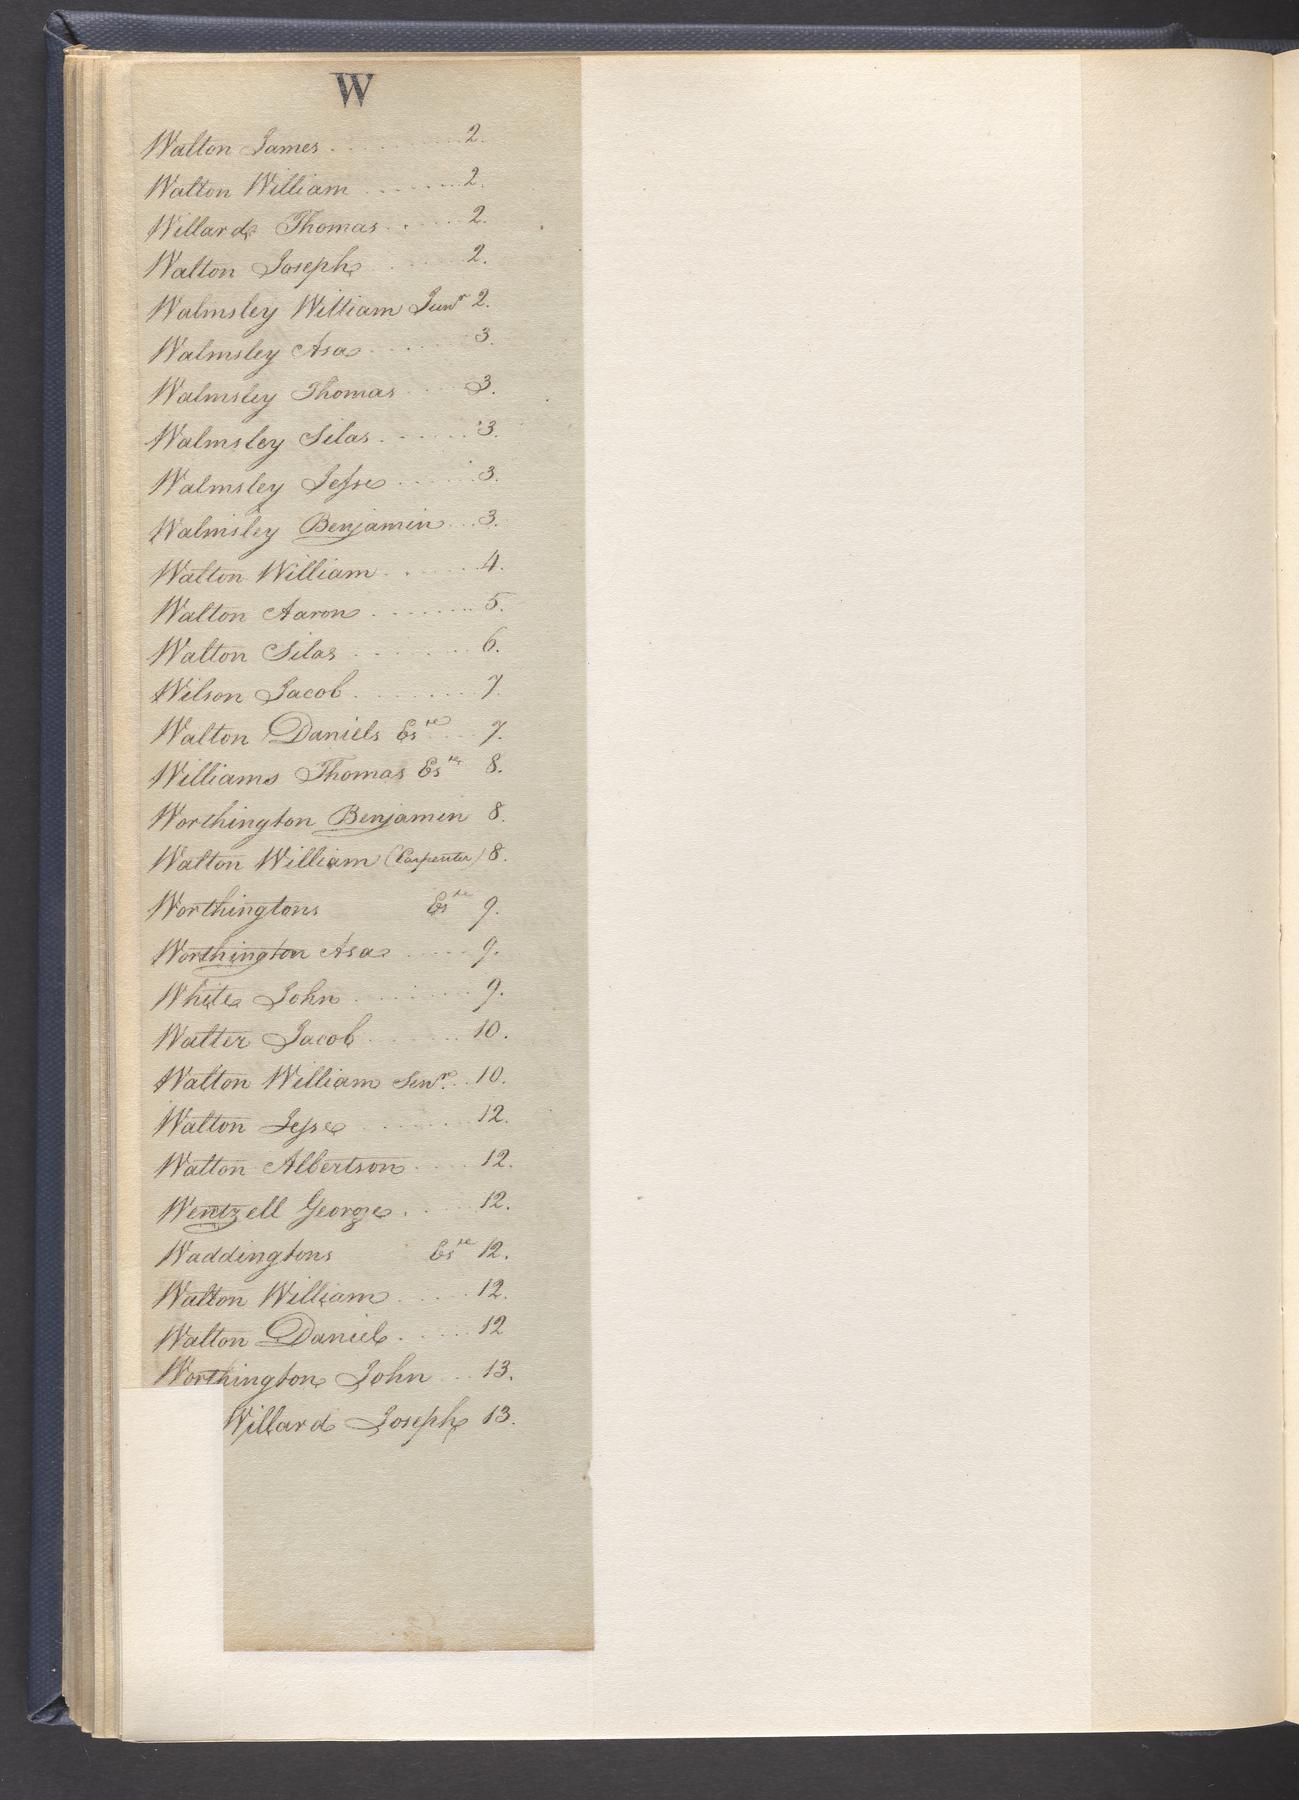 W
Walton James . . . . . . . . . . 2.
Walton William . . . . . . . 2.
Willard Thomas . . . . . 2.
Walton Joseph . . . . . . 2.
Walmsley William Junr 2.
Walmsley Asa . . . . . . . 3.
Walmsley Thomas . . . . 3.
Walmsley Silas . . . . . . 3.
Walmsley Jesse . . . . . . 3.
Walmsley Benjamin . . . 3.
Walton William . . . . . . 4.
Walton Aaron . . . . . . . . 5.
Walton Silas . . . . . . . . 6.
Wilson Jacob . . . . . . . . 7.
Walton Daniels Este . . . 7.
Williams Thomas Este 8.
Worthington Benjamin 8.
Walton William (Carpenter) 8.
Worthingtons Este 9.
Worthington Asa . . . . . 9.
White John . . . . . . . 9.
Walter Jacob . . . . . . . 10.
Walton William Senr. . . 10.
Walton Jesse . . . . . . . 12.
Walton Albertson . . . . 12.
Wentzell George . . . . . 12.
Waddingtons Este 12.
Walton William . . . . . 12.
Walton Daniel . . . . . 12
Worthington John . . . 13.
Willard Joseph 13.